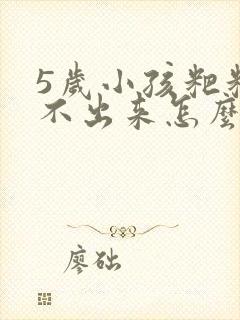 5歲小孩粑粑
不出來怎麼
廖础